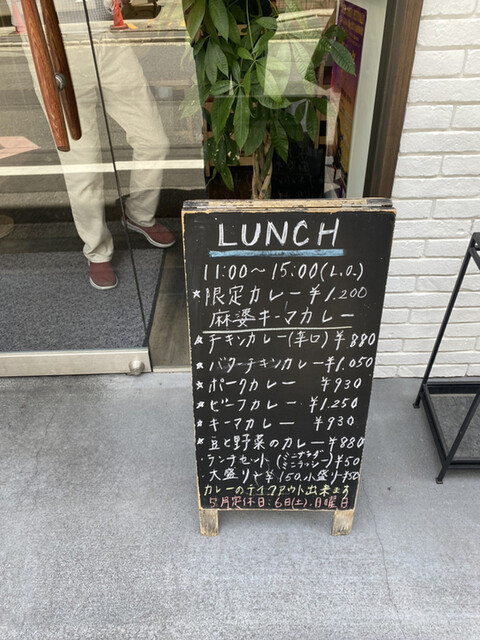 LUNCH
11:00～15:00(L.O.)
★限定カレー ¥1.200
麻婆キーマカレー
★チキンカレー(辛口) ¥880
★バターチキンカレー ¥1.050
★ポークカレー ¥930
★ビーフカレー ¥1.250
★キーマカレー ¥930
★豆と野菜のカレー ¥880
ランチセット(ミニサラダ ミニラッシー) ¥50
大盛り ¥150. 小盛り
カレーのテイクアウト出来ます
5月定休日:6日(土).日曜日